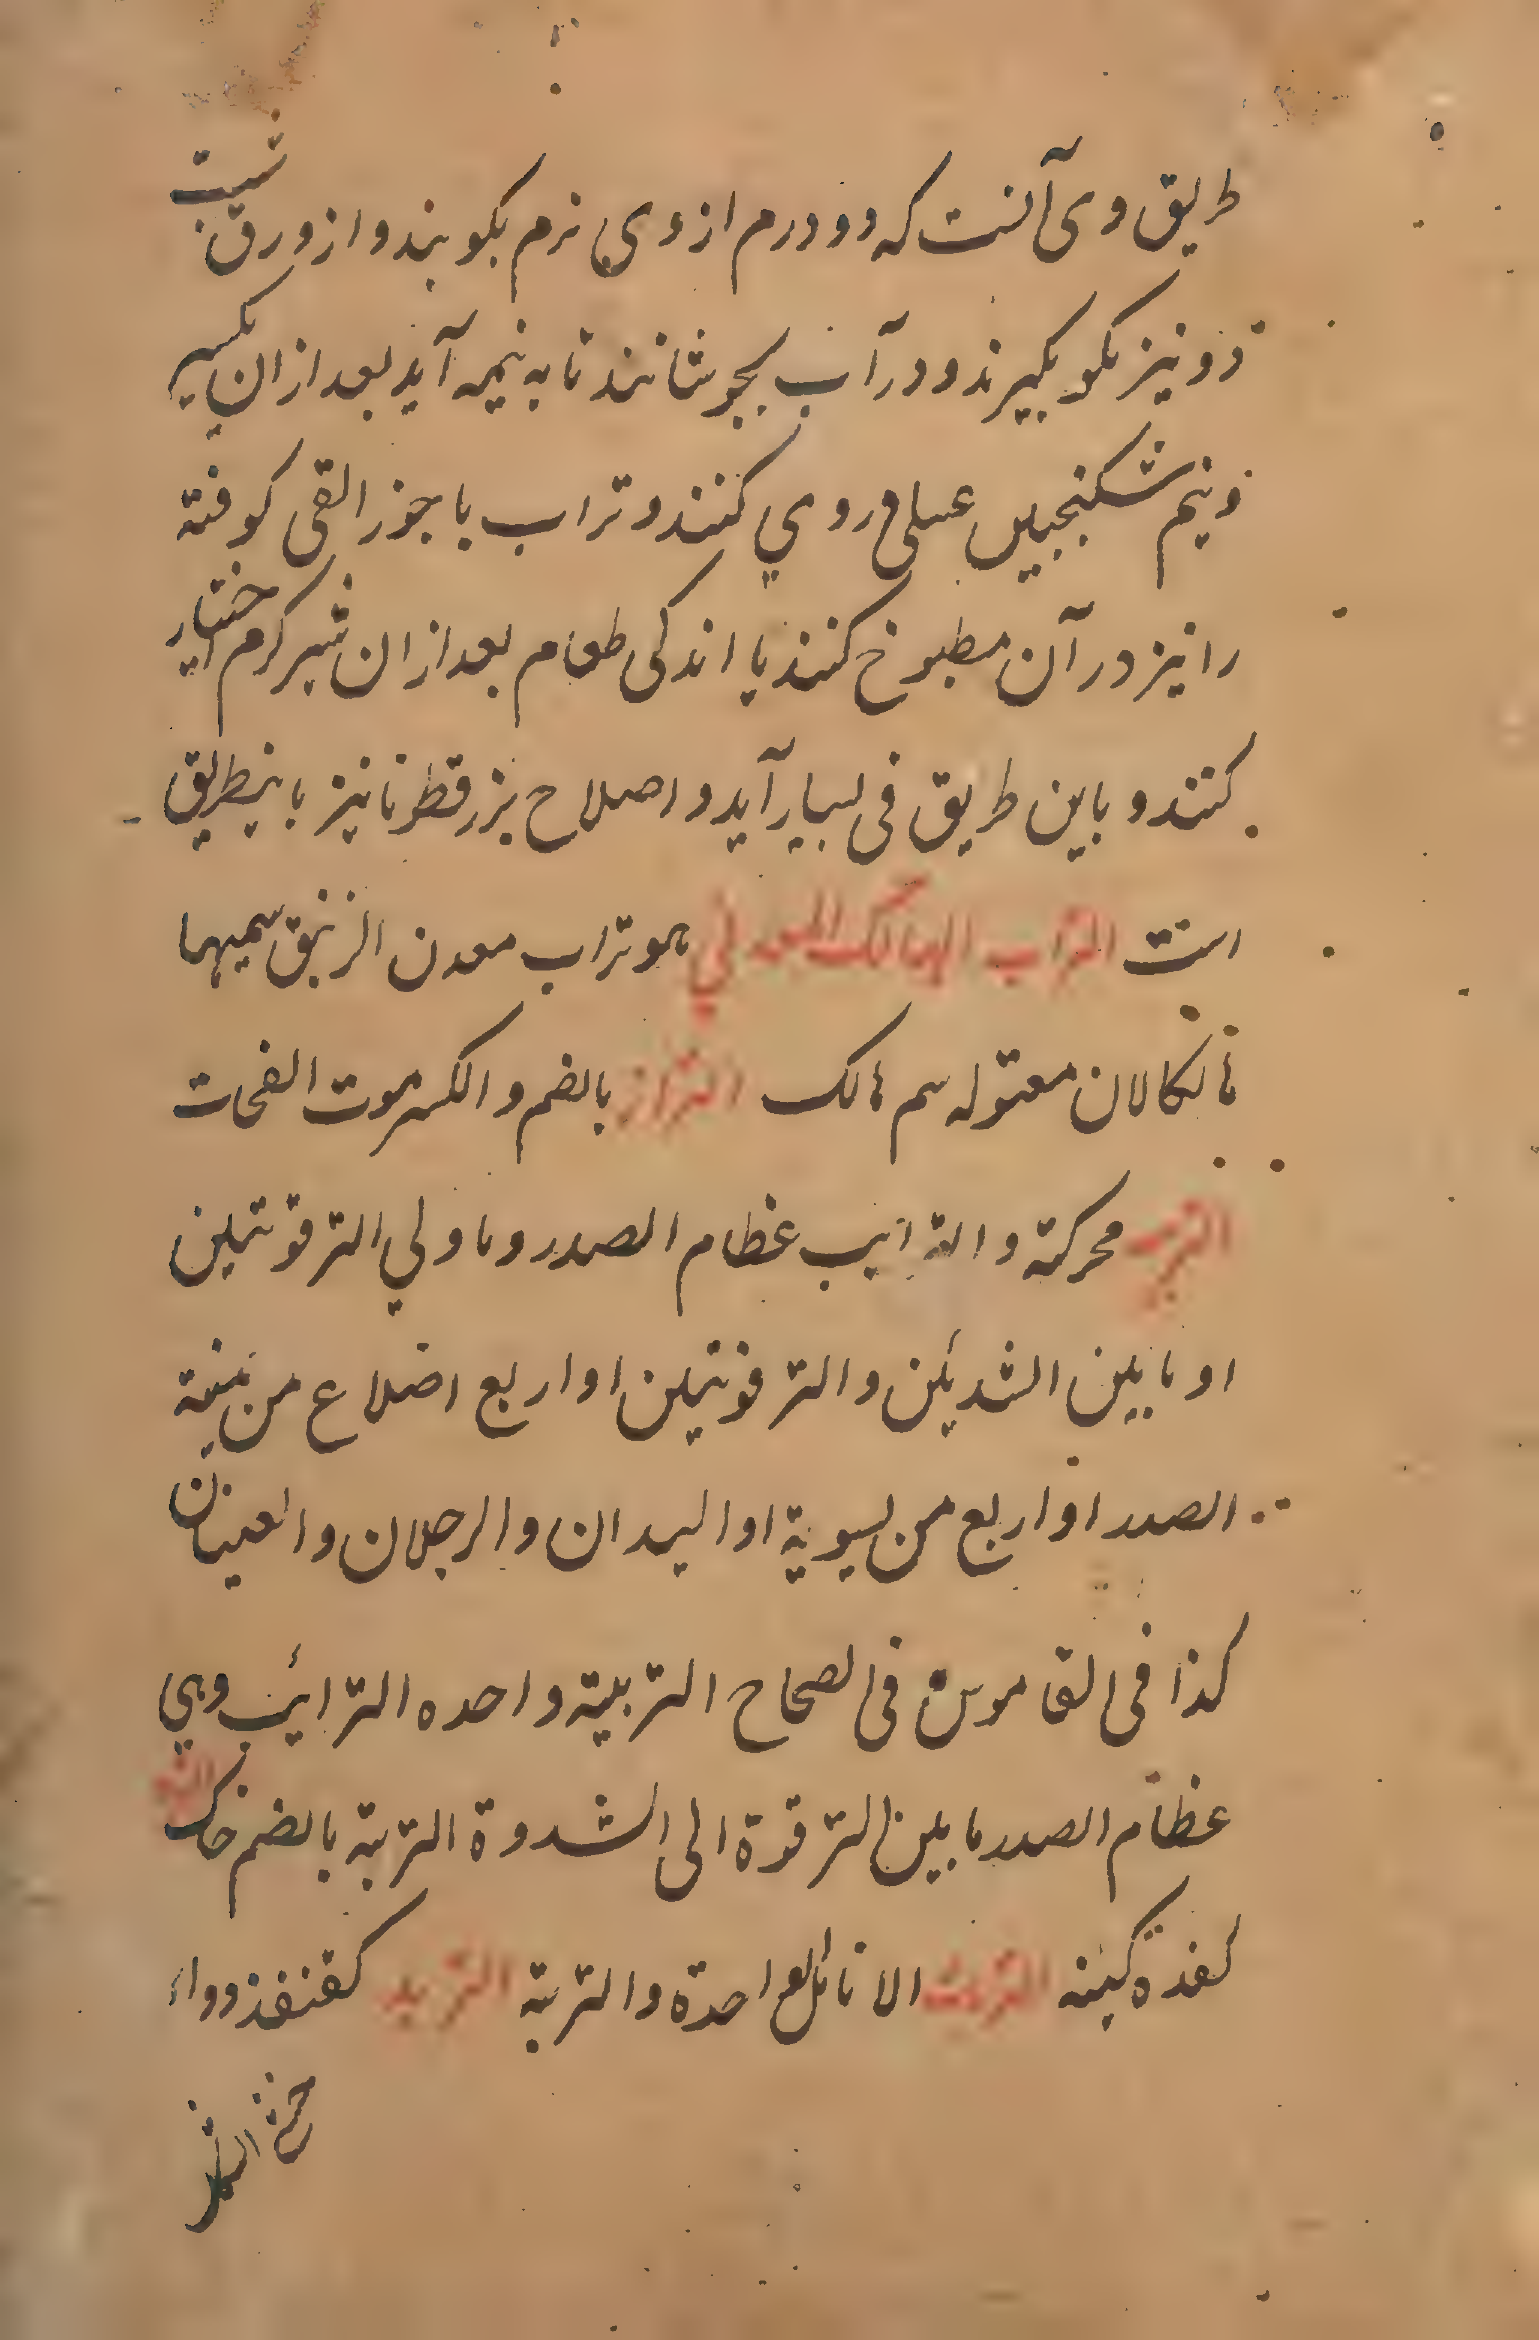 طریق وی آنست که دو درم از وی نرم بکوبند و از ورق شبت
دو نیز نکو بکیرند و در آب بجوشانند تا به نیمه آید بعد ازان یکسیر
و نیم سکنجبین عسلی در وی کنند و تراب با جوز القی کوفته
را نیز در آن مطبوخ کنند با اندکی طعام بعد ازان شیر کرم اختیار
کنند و باین طریق قی بسیار آید و اصلاح بزر قطونا نیز باینطریق
است التراب الهالک المعدنی هو تراب معدن الزیبق سمیها
هالکا لان معتوله سم هالک التراز بالضم و الکسر موت الفجات
الترب محرکة و الترائب عظام الصدر و ما ولی الترقوتین
او ما بین الثدیین و الترقوتین او اربع اضلاع من یمنة
الصدر او اربع من یسویة او الیدان و الرجلان و العینان
کذا فی القاموس فی الصحاح التریبة واحده الترائب وهی
عظام الصدر ما بین الترقوة الی الثندوة التربة بالضم خاک
کفذة کینه التربت الانامل واحدة و التربة التربد کقنفذ دواء